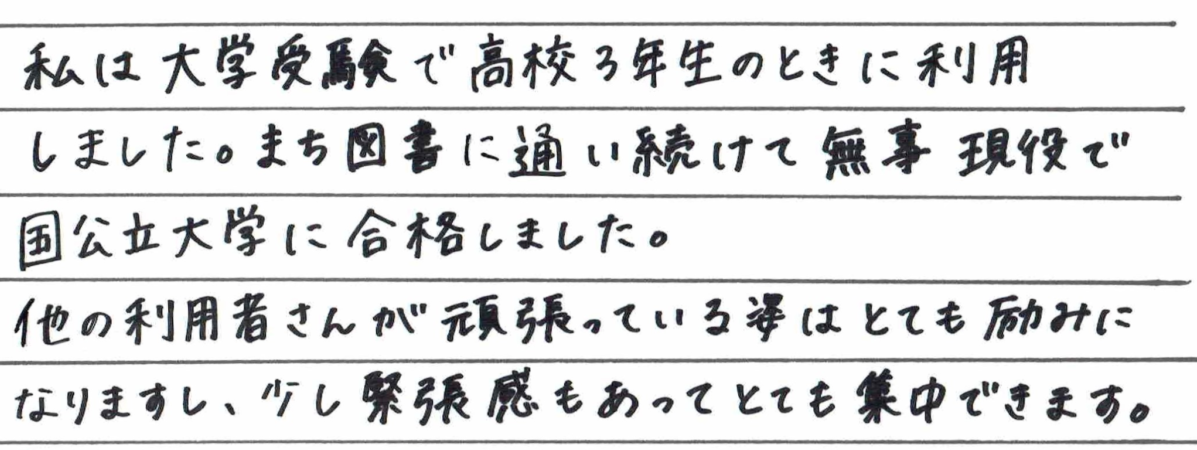 私は大学受験で高校3年生のときに利用
しました。まち図書に通い続けて無事 現役で
国公立大学に合格しました。
他の利用者さんが頑張っている姿はとても励みに
なりますし、少し緊張感もあってとても集中できます。